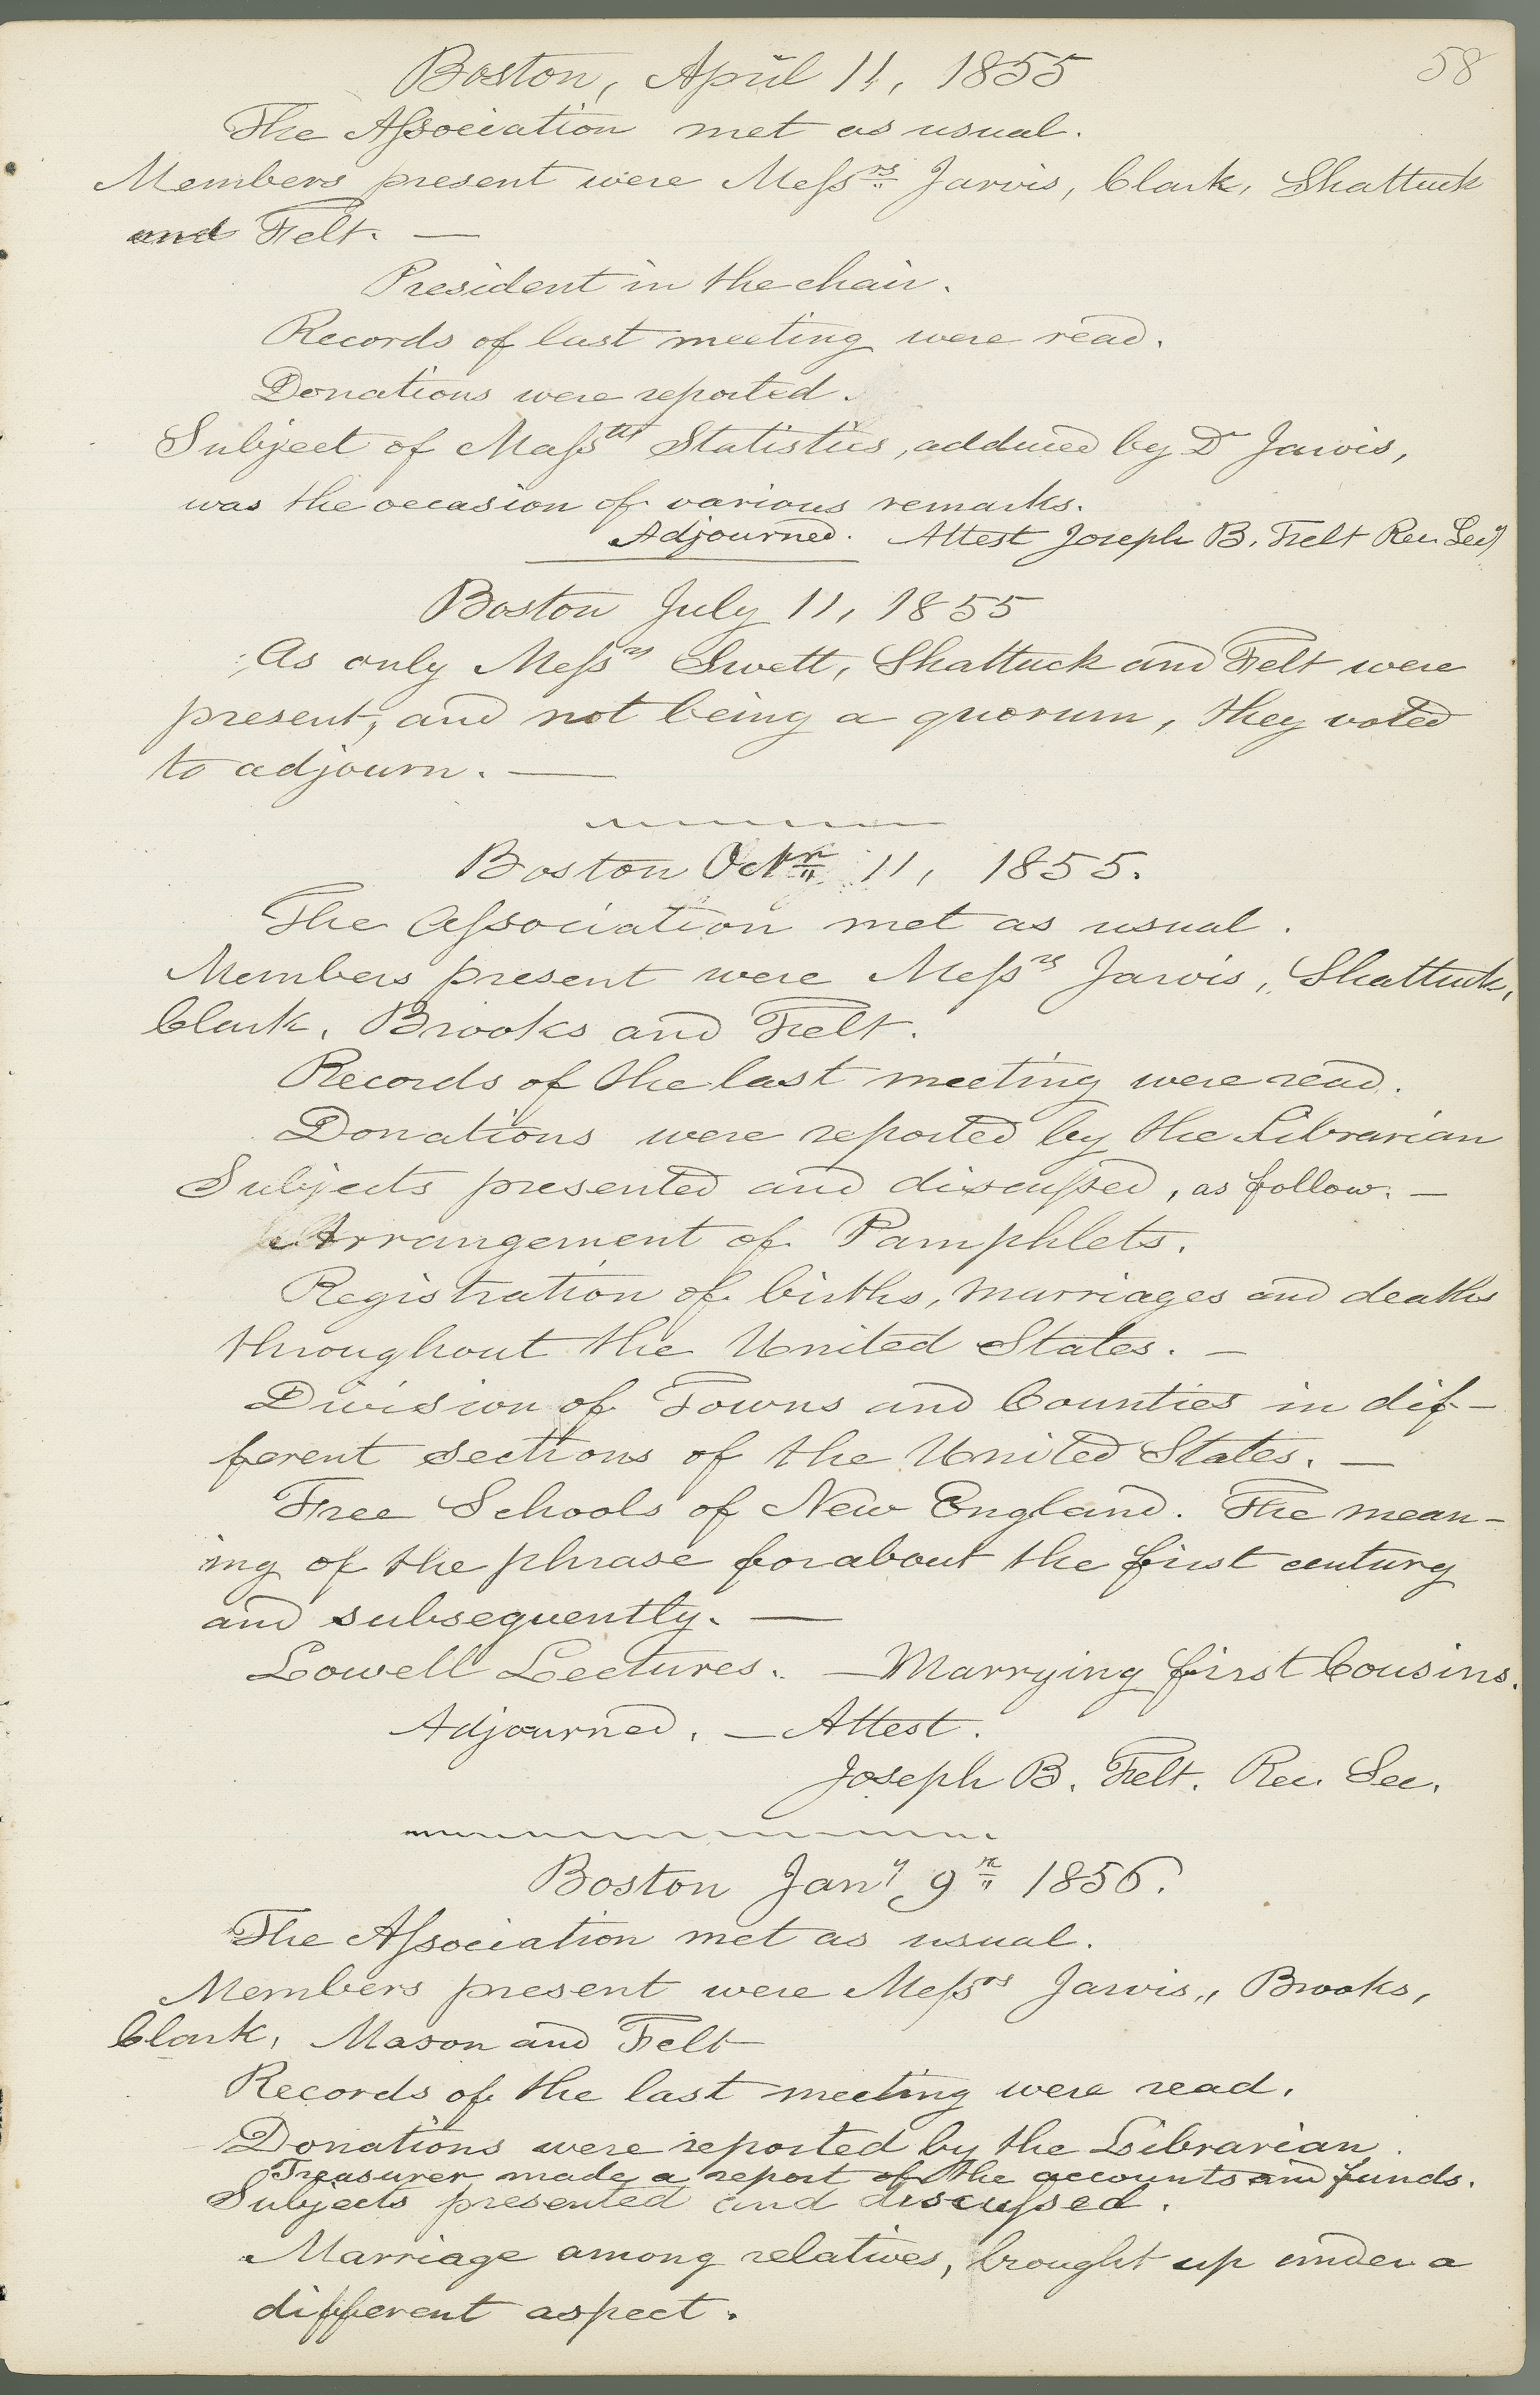 58
Boston, April 11, 1855
The Aſsociation met as usual.
Members present were Meſsrs Jarvis, Clark, Shattuck
and Felt. —
President in the chair.
Records of last meeting were read.
Donations were reported.
Subject of Maſstts Statistics, adduced by Dr Jarvis,
was the occasion of various remarks.
Adjourned. Attest Joseph B. Felt Rec. Secy
Boston July 11, 1855
As only Meſsrs Swett, Shattuck and Felt were
present, and not being a quorum, they voted
to adjourn. —
Boston Octr 11, 1855.
The Aſsociation met as usual.
Members present were Meſsrs Jarvis, Shattuck,
Clark, Brooks and Felt.
Records of the last meeting were read.
Donations were reported by the Librarian
Subjects presented and discuſsed, as follow. —
Arrangement of Pamphlets.
Registration of births, marriages and deaths
throughout the United States. —
Division of Towns and Counties in dif-
ferent sections of the United States. —
Free Schools of New England. The mean-
ing of the phrase for about the first century
and subsequently. —
Lowell Lectures. — Marrying first Cousins.
Adjourned. — Attest.
Joseph B. Felt. Rec. Sec.
Boston Jany 9 1856.
The Aſsociation met as usual.
Members present were Meſsrs Jarvis,, Brooks,
Clark, Mason and Felt
Records of the last meeting were read.
Donations were reported by the Librarian.
Treasurer made a report of the accounts and funds.
Subjects presented and discuſsed.
Marriage among relatives, brought up under a
different aspect.